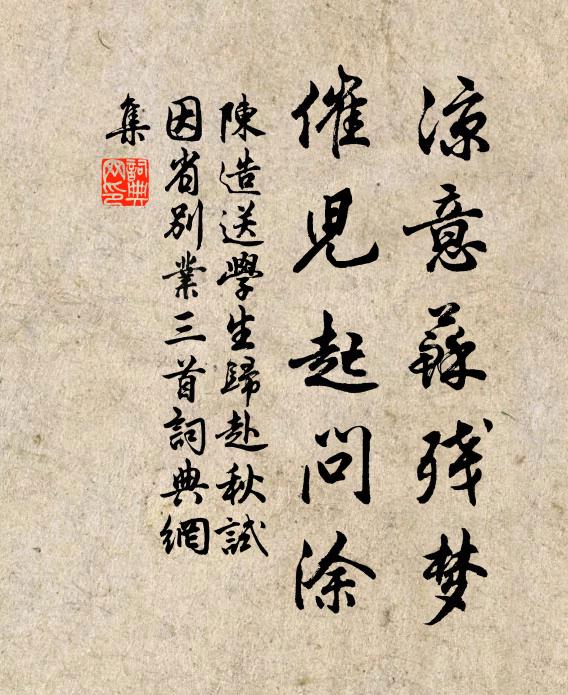 涼意蘇残梦
催兒起問涂
陳造送學生歸赴秋試
因省别業三首詞典網
集
詞典
网印